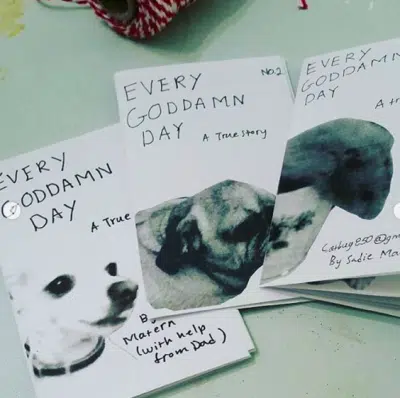 EVERY
GODDAMN
DAY
A True
Matern
(with help
from Dad)
EVERY
GODDAMN
DAY
No. 2
A True Story
EVERY
GODDAMN
DAY
A
By Sadie